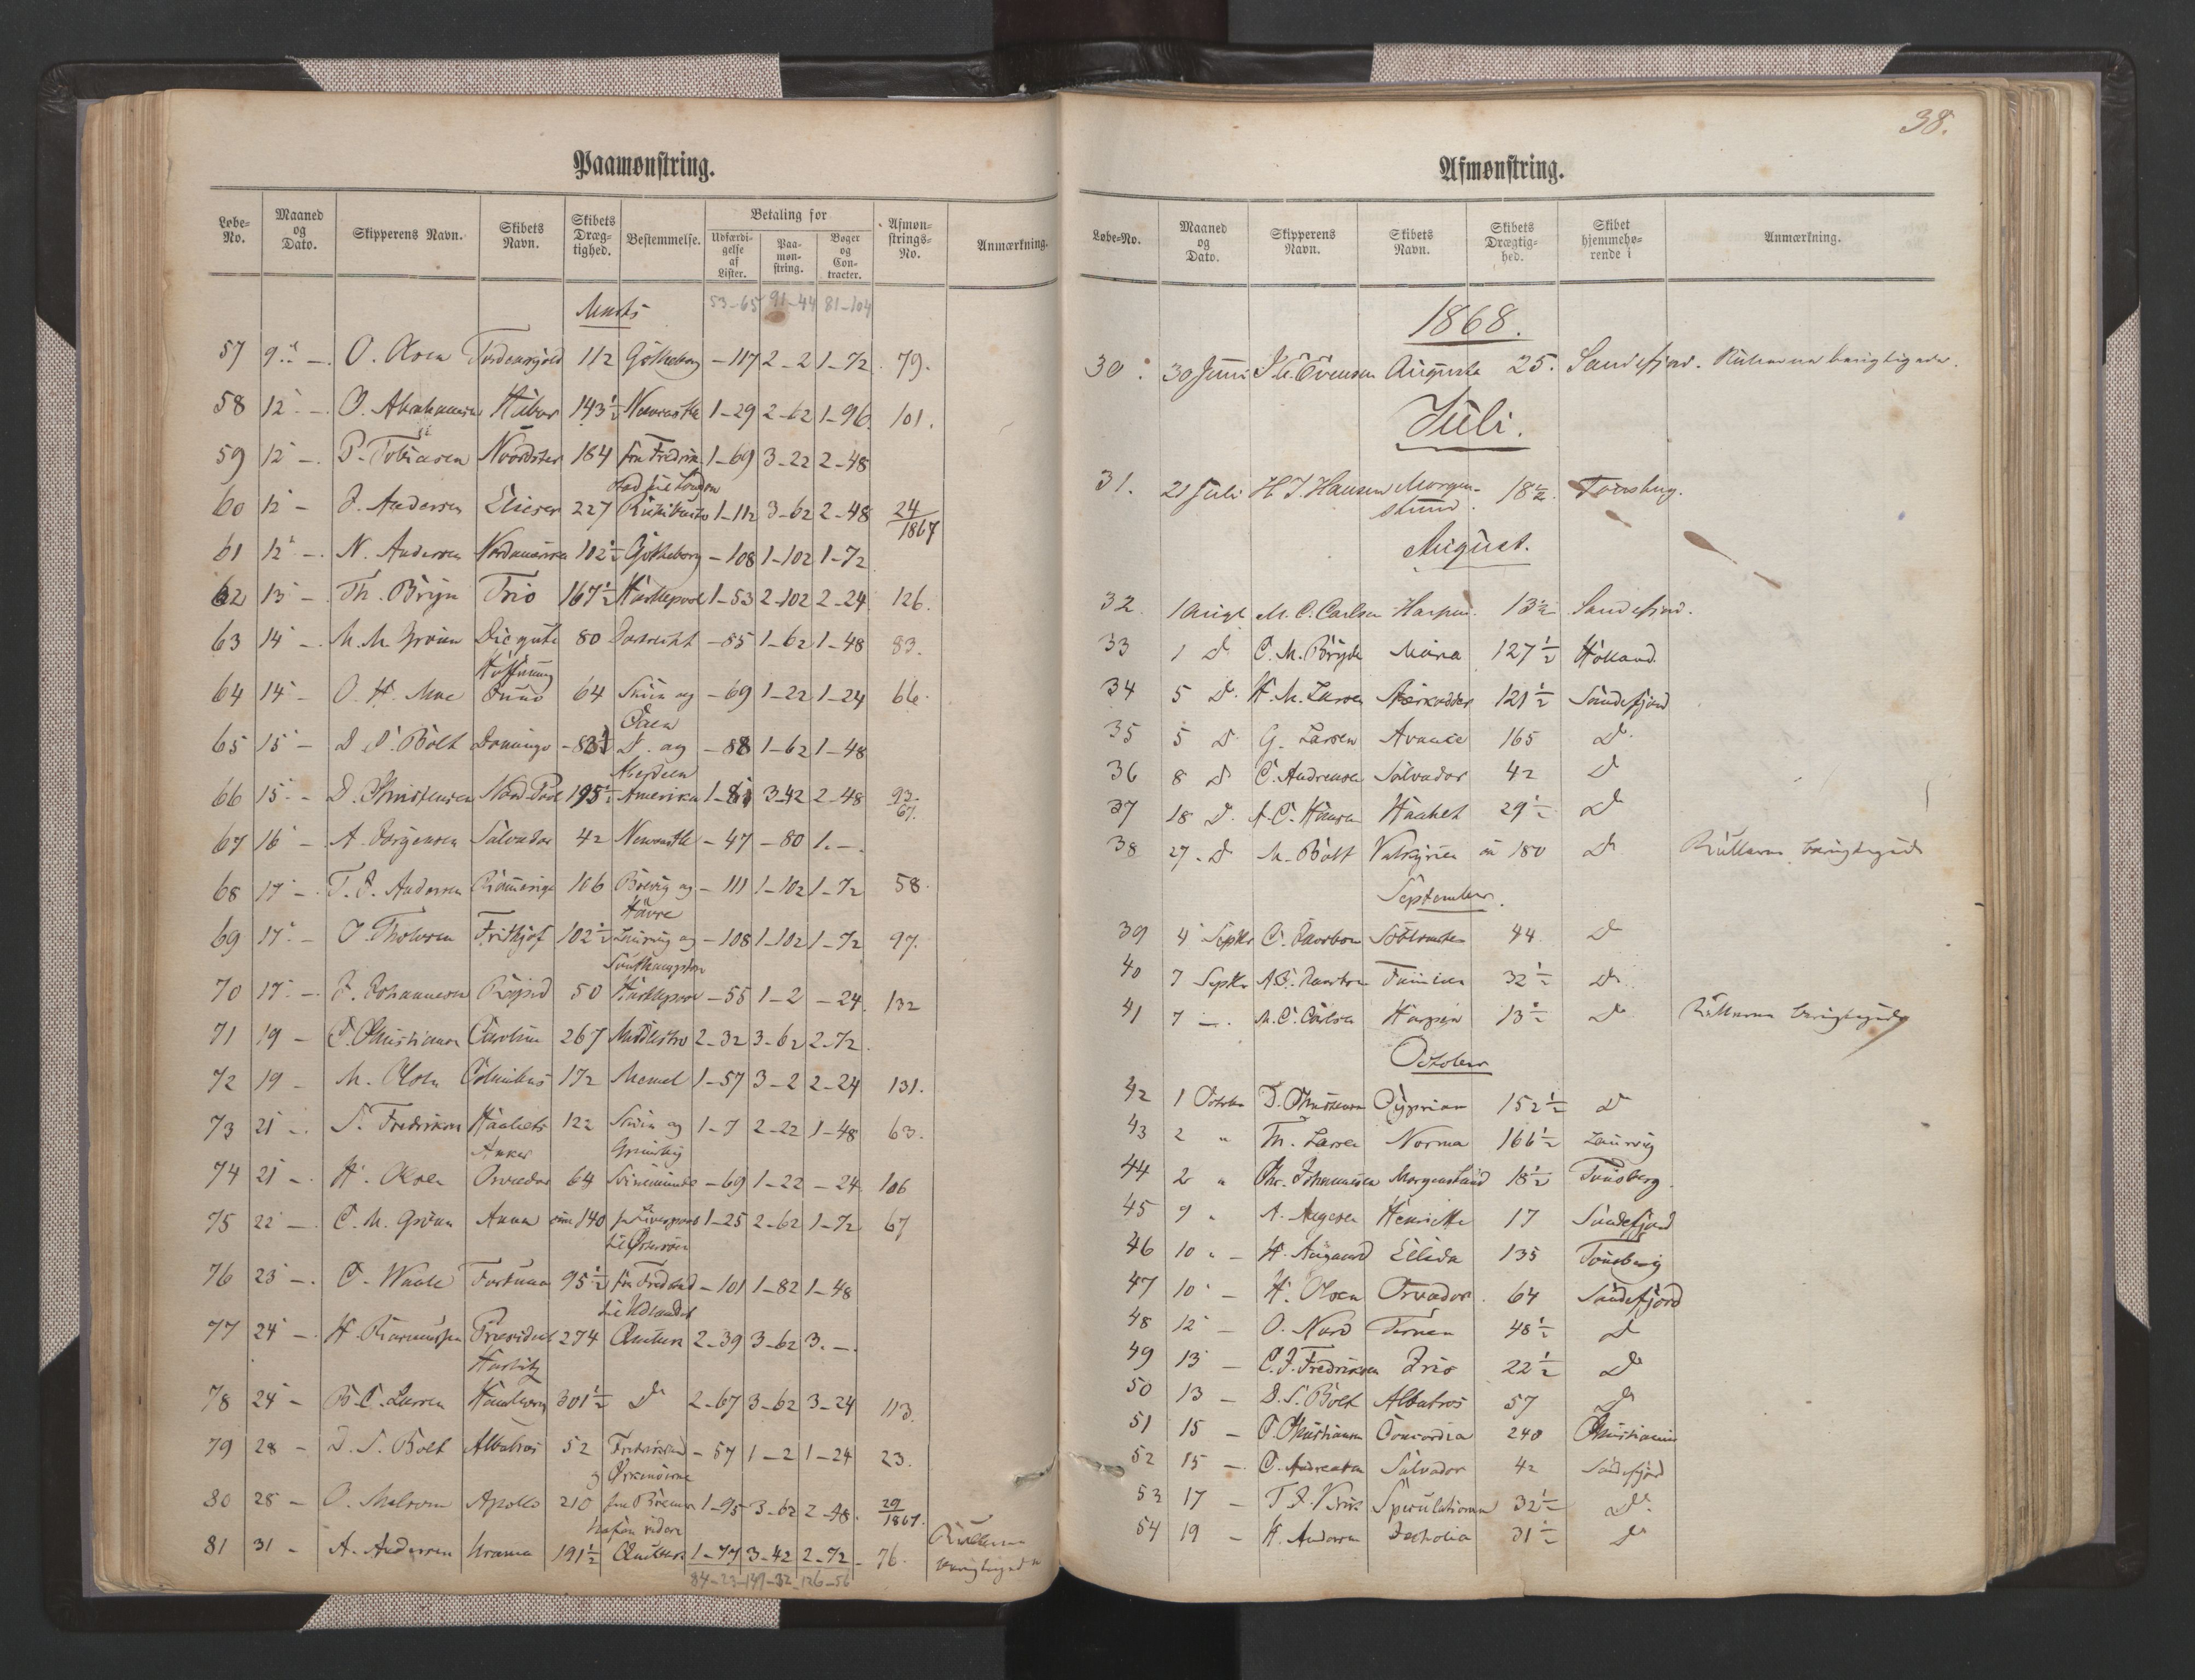 Paamønstring.
Løbe-No. Maaned og Dato. Skipperens Navn. Skibets Navn. Skibets Dræg-tighed. Bestemmelse. Betaling for Udfærdi-gelse af Lister. Paa-møn-string. Bøger og Con-tracter. Afmøn-strings-No. Anmærkning.
Marts 53-65 91-44 81-104
57 9 - O. Olsen Tordenskjold 112 Gøtheborg -117 2-2 1-72 79.
58 12 - O. Abrahamsen 143½ Newcastle 1-29 2-62 1-96 101.
59 12 - P. Tobiasen Nordster 184 fra Fredrik- 1-69 3-22 2-48
stad til London
60 12 - J. Andersen Elieser 227 1-112 3-62 2-48 24/1867
61 12 - N. Andersen 102½ Gøtheborg -108 1-102 1-72
62 13 - Th. Bryn Trio 167½ Hartlepool 1-53 2-102 2-24 126.
63 14 - M. M. Grønn Die gute 80 Dordrecht -85 1-62 1-48 83.
Hoffnung
64 14 - O. H. Moe Juno 64 Skien og -69 1-22 1-24 66.
Caen
65 15 - D. S. Bolt Domingo -83½ D. og -88 1-62 1-48
Aberdeen
66 15 - D. Christensen Nord Pool 195½ Amerika 1-81 3-42 2-48 93/67.
67 16 - A. Jørgensen Salvador 42 Newcastle -47 -80 1.-.
68 17 - T. J. Andersen 106 Brevig og -111 1-102 1-72 58.
Havre
69 17 - O. Tholersen Frithjof 102½ Laurvig og -108 1-102 1-72 97.
Southampton
70 17 - J. Johannesen 50 Hartlepool -55 1-2 -24 132
71 19 - C. Christiansen Caroline 267 Middlesbro 2-32 3-62 2-72.
72 19 - M. Olsen Columbus 172 Memel 1-57 3-2 2-24 131.
73 21 - S. Fredriksen Haabets 122 Skien og 1-7 2-22 1-48 63.
Anker Grimsby
74 21 - H. Olsen Orvador 64 Svinemünde -69 1-22 -24 106
75 22 - C. M. Grønn Anna 140 fra Liverpool 1-25 2-62 1-72 67
til Østersøen
76 23 - C. Waale Fortuna 95½ fra Fredstad -101 1-82 1-48
til Udlandet
77 24 - H. Rasmussen President 274 Quebec 2-39 3-62 3.-.
Harbitz
78 24 - B. C. Larsen 301½ D 2-67 3-62 3-24 113.
79 28 - D. S. Bolt Albatros 52 -57 1-2 1-24 23.
80 28 - O. Apollo 210 fra Bremer- 1-95 3-62 2-48. 29/1867.
hafen videre
81 31 - A. Andersen Urania 191½ Quebec 1-77 3-42 2-72 76. Rullerne
berigtiged
84-23 149-32 126-56
38.
Afmønstring.
Løbe-No. Maaned og Dato. Skipperens Navn. Skibets Navn. Skibets Drægtig-hed. Skibet hjemmehø-rende i Anmærkning.
1868.
30. 30 Juni Evensen Auguste 25. Sandefjord. Rullerne berigtigede.
Juli.
31. 21 Juli H. J. Hansen Morgen- 18½ Tønsberg.
stund.
August.
32. 1 Augt M. C. Carlsen Harpen 13½ Sandefjord.
33 1 D. C. M. Bryde Maria 127½ Holland
34 5 D. H. M. Larsen 121½ Sandefjord
35 5 D G. Larsen Avance 165 D.
36 8 D C. Andreasen Salvador 42 D
37 18 D. A. C. Hansen Haabet 29½ D
38 27. D M. Bolt Valkyrien 180 D Rullerne berigtigede
September.
39 4 Septbr C. Jacobsen 44 D
40 7 Septbr Familien 32½ D.
41 7 -. M. C. Carlsen Harpen 13½ D Rullerne berigtigede
October
42 1 Octobr D. Christensen Cyprian 152½ D
43 2 " Th. Larsen Norma 166½ Laurvig
44 2 " Chr. Johannesen Morgenstund 18½ Tønsberg.
45 9 " A. Aagesen Henriette 17 Sandefjord
46 10 " - H. Aagaard Ellida 135 Tønsberg
47 10 - H. Olsen Orvador. 64 Sandefjord
48 12 - O. Nord Ternen 48½ D
49 13 - C. J. Fredriksen Iris 22½ D
50 13 - D. S. Bolt Albatros 57 D
51 15 - C. Christiansen Concordia 240 Christiania
52 15 -. C. Andreasen Salvador 42 Sandefjord
53 17 - Speculationen 32½ D.
54 19 - H. Andersen 31½ D